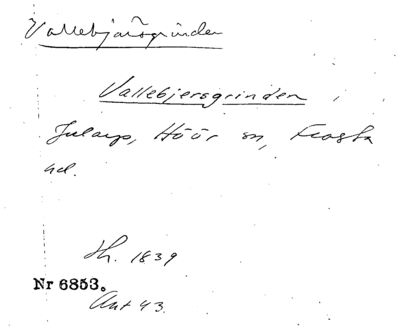 Vallebjärsgrinden
Vallebjersgrinden,
Jularp, Höör sn, Frosta
hd.
Sh. 1839
Nr 6853.
Ant 43.